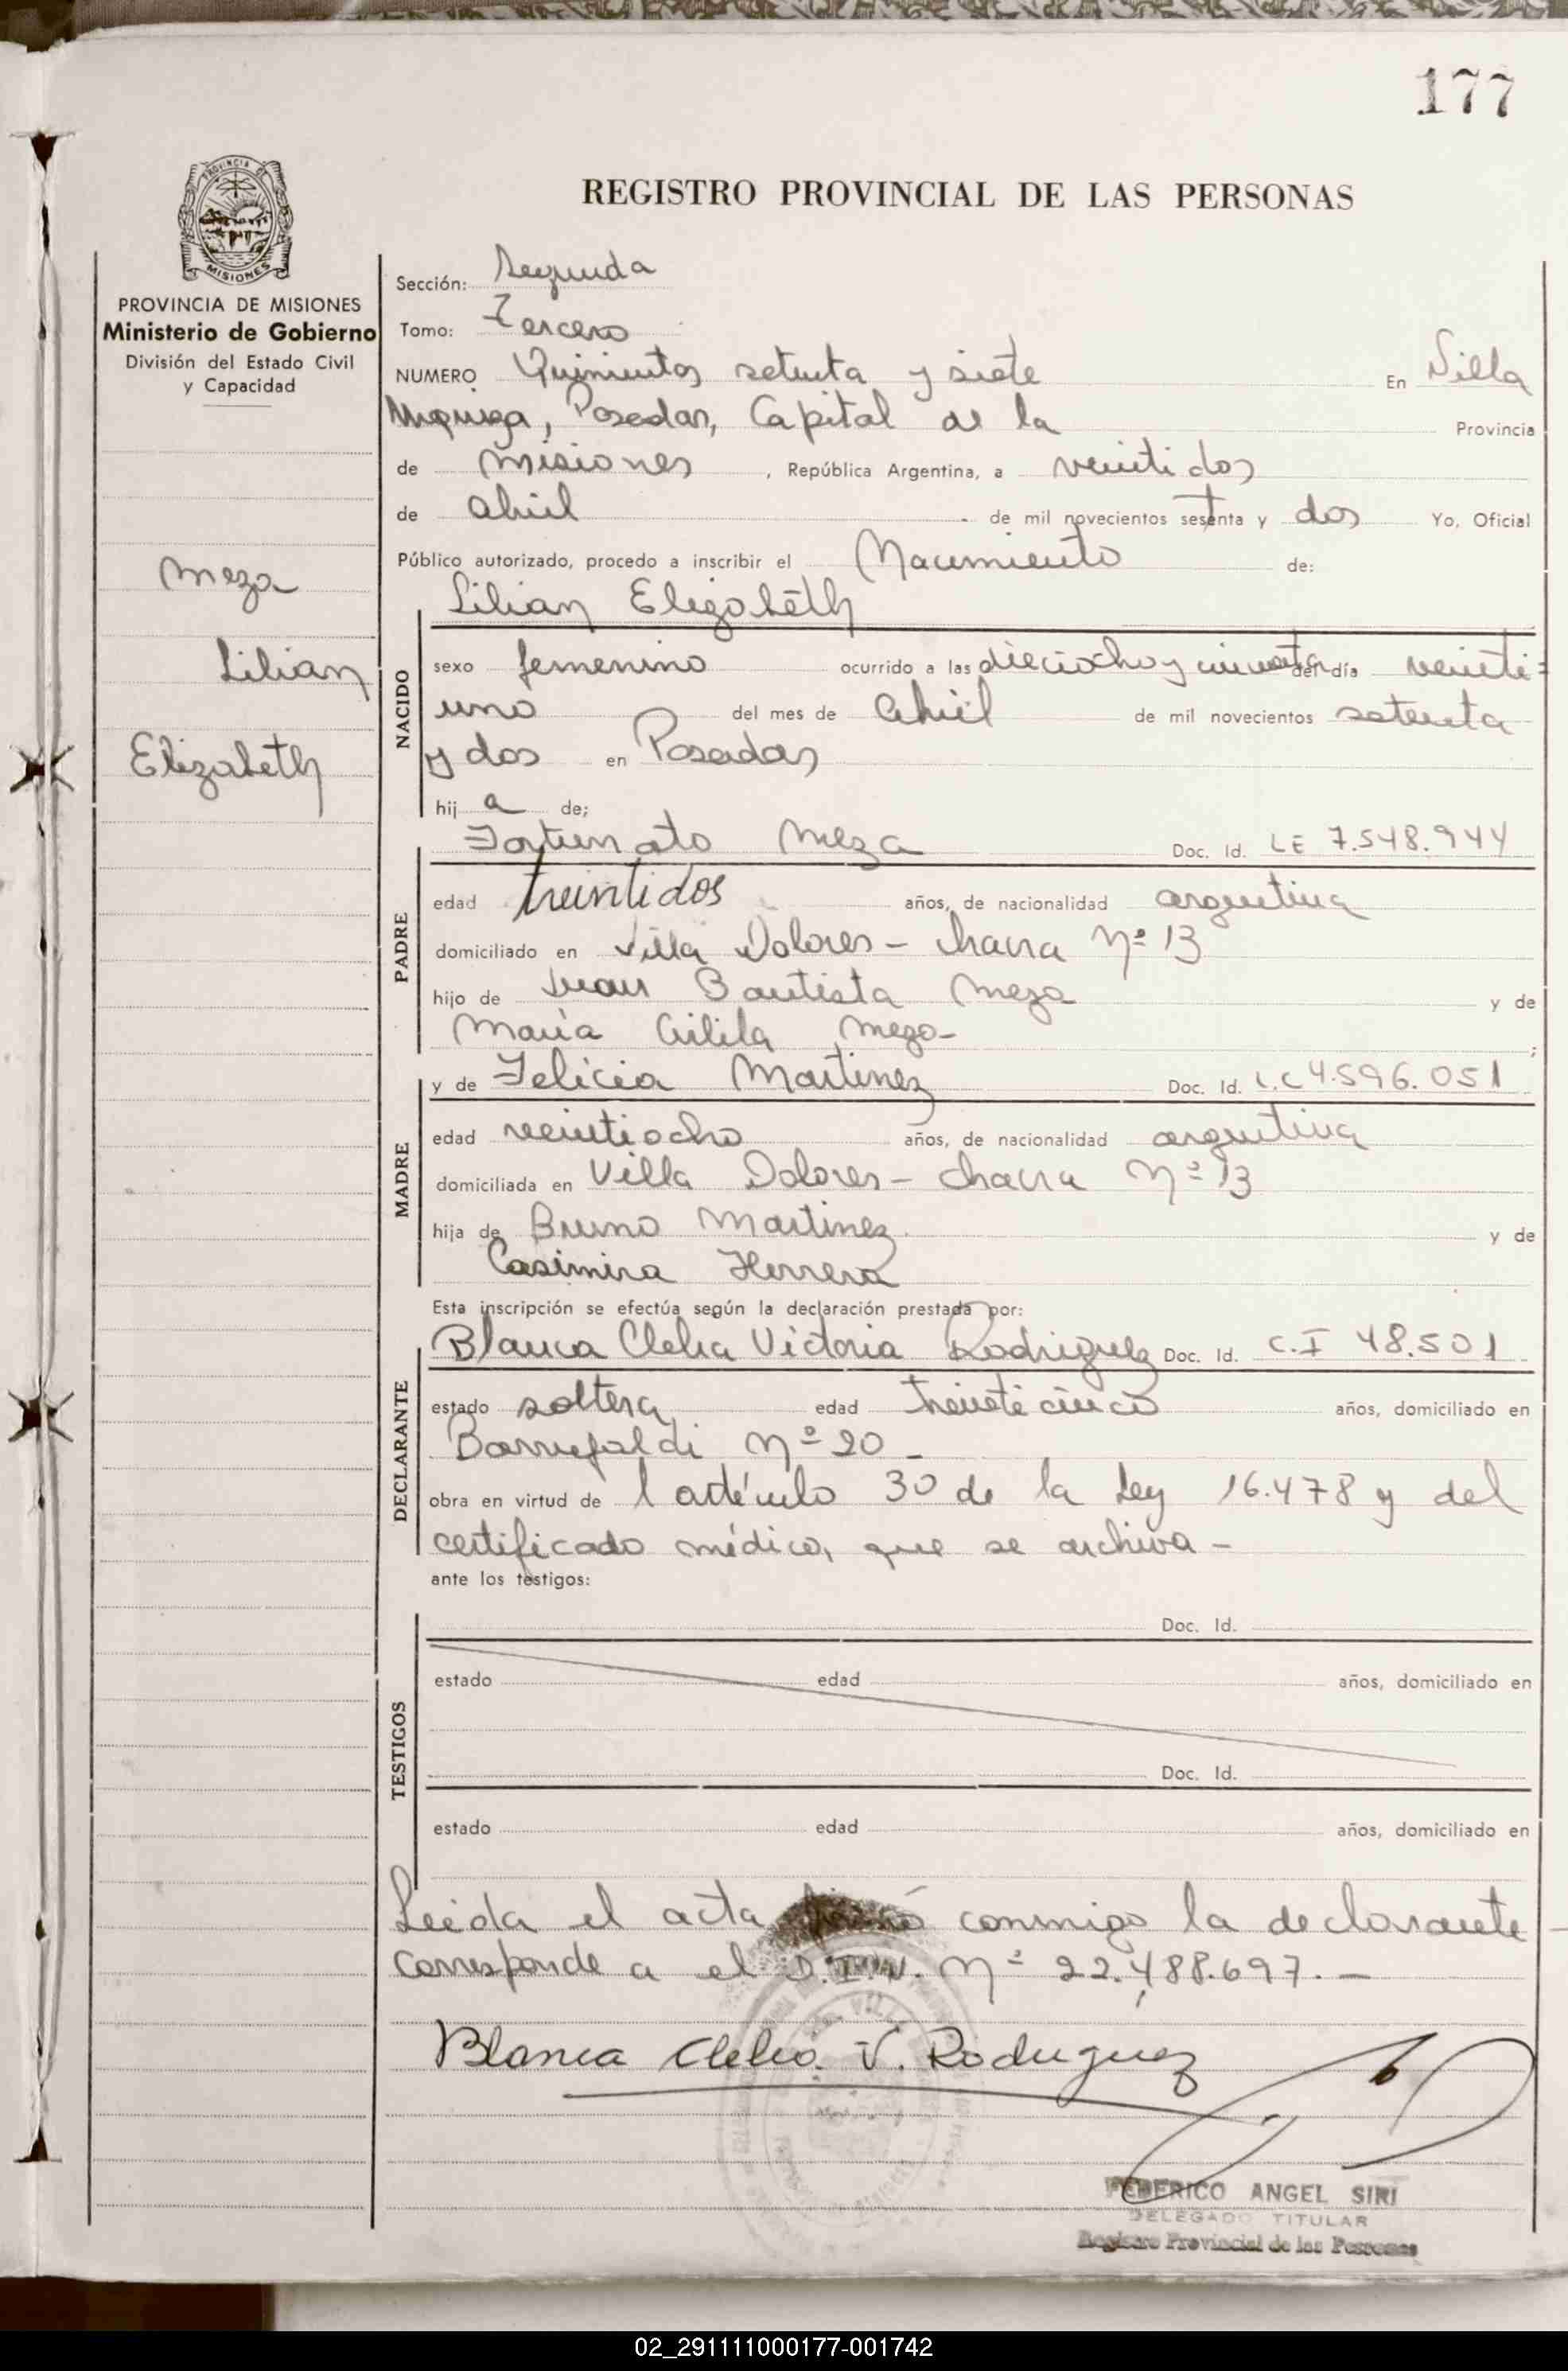 177
PROVINCIA DE
MISIONES
REGISTRO PROVINCIAL DE LAS PERSONAS
PROVINCIA DE MISIONES
Ministerio de Gobierno
División del Estado Civil
y Capacidad
Sección: Segunda
Tomo: Tercero
NUMERO Quinientos setenta y siete En Villa
Urquiza, Posadas, Capital de la Provincia
de Misiones, República Argentina, a veintidos
de abril de mil novecientos setenta y dos Yo, Oficial
Público autorizado, procedo a inscribir el Nacimiento de:
Meza
Lilian
Elizabeth
Lilian Elizabeth
NACIDO
sexo femenino ocurrido a las dieciocho y cincuenta del día veinti=
uno del mes de abril de mil novecientos setenta
y dos en Posadas
hij a de;
Fortunato Meza Doc. Id. LE 7.548.944
PADRE
edad treintidos años, de nacionalidad argentina
domiciliado en Villa Dolores - chacra Nº 13
hijo de Juan Bautista Meza y de
María Meza - ;
y de Felicia Martinez Doc. Id. L.C 4.596.051
MADRE
edad veintiocho años, de nacionalidad argentina
domiciliada en Villa Dolores - chacra Nº 13
hija de Bruno Martinez y de
Casimira Herrera
Esta inscripción se efectúa según la declaración prestada por:
Blanca Clelia Victoria Rodriguez Doc. Id. C.I 48.501
DECLARANTE
estado soltera edad treinticinco años, domiciliado en
Barrufaldi Nº 20 -
obra en virtud de l artículo 30 de la Ley 16.478 y del
certificado médico, que se archiva -
ante los testigos:
Doc. Id.
TESTIGOS
estado edad años, domiciliado en
Doc. Id.
estado edad años, domiciliado en
Leida el acta firmó conmigo la declarante -
corresponde a el D.I.N. Nº 22.488.697. -
Blanca Clelia V. Rodriguez
FEDERICO ANGEL SIRI
DELEGADO TITULAR
Registro Provincial de las Personas
02_291111000177-001742